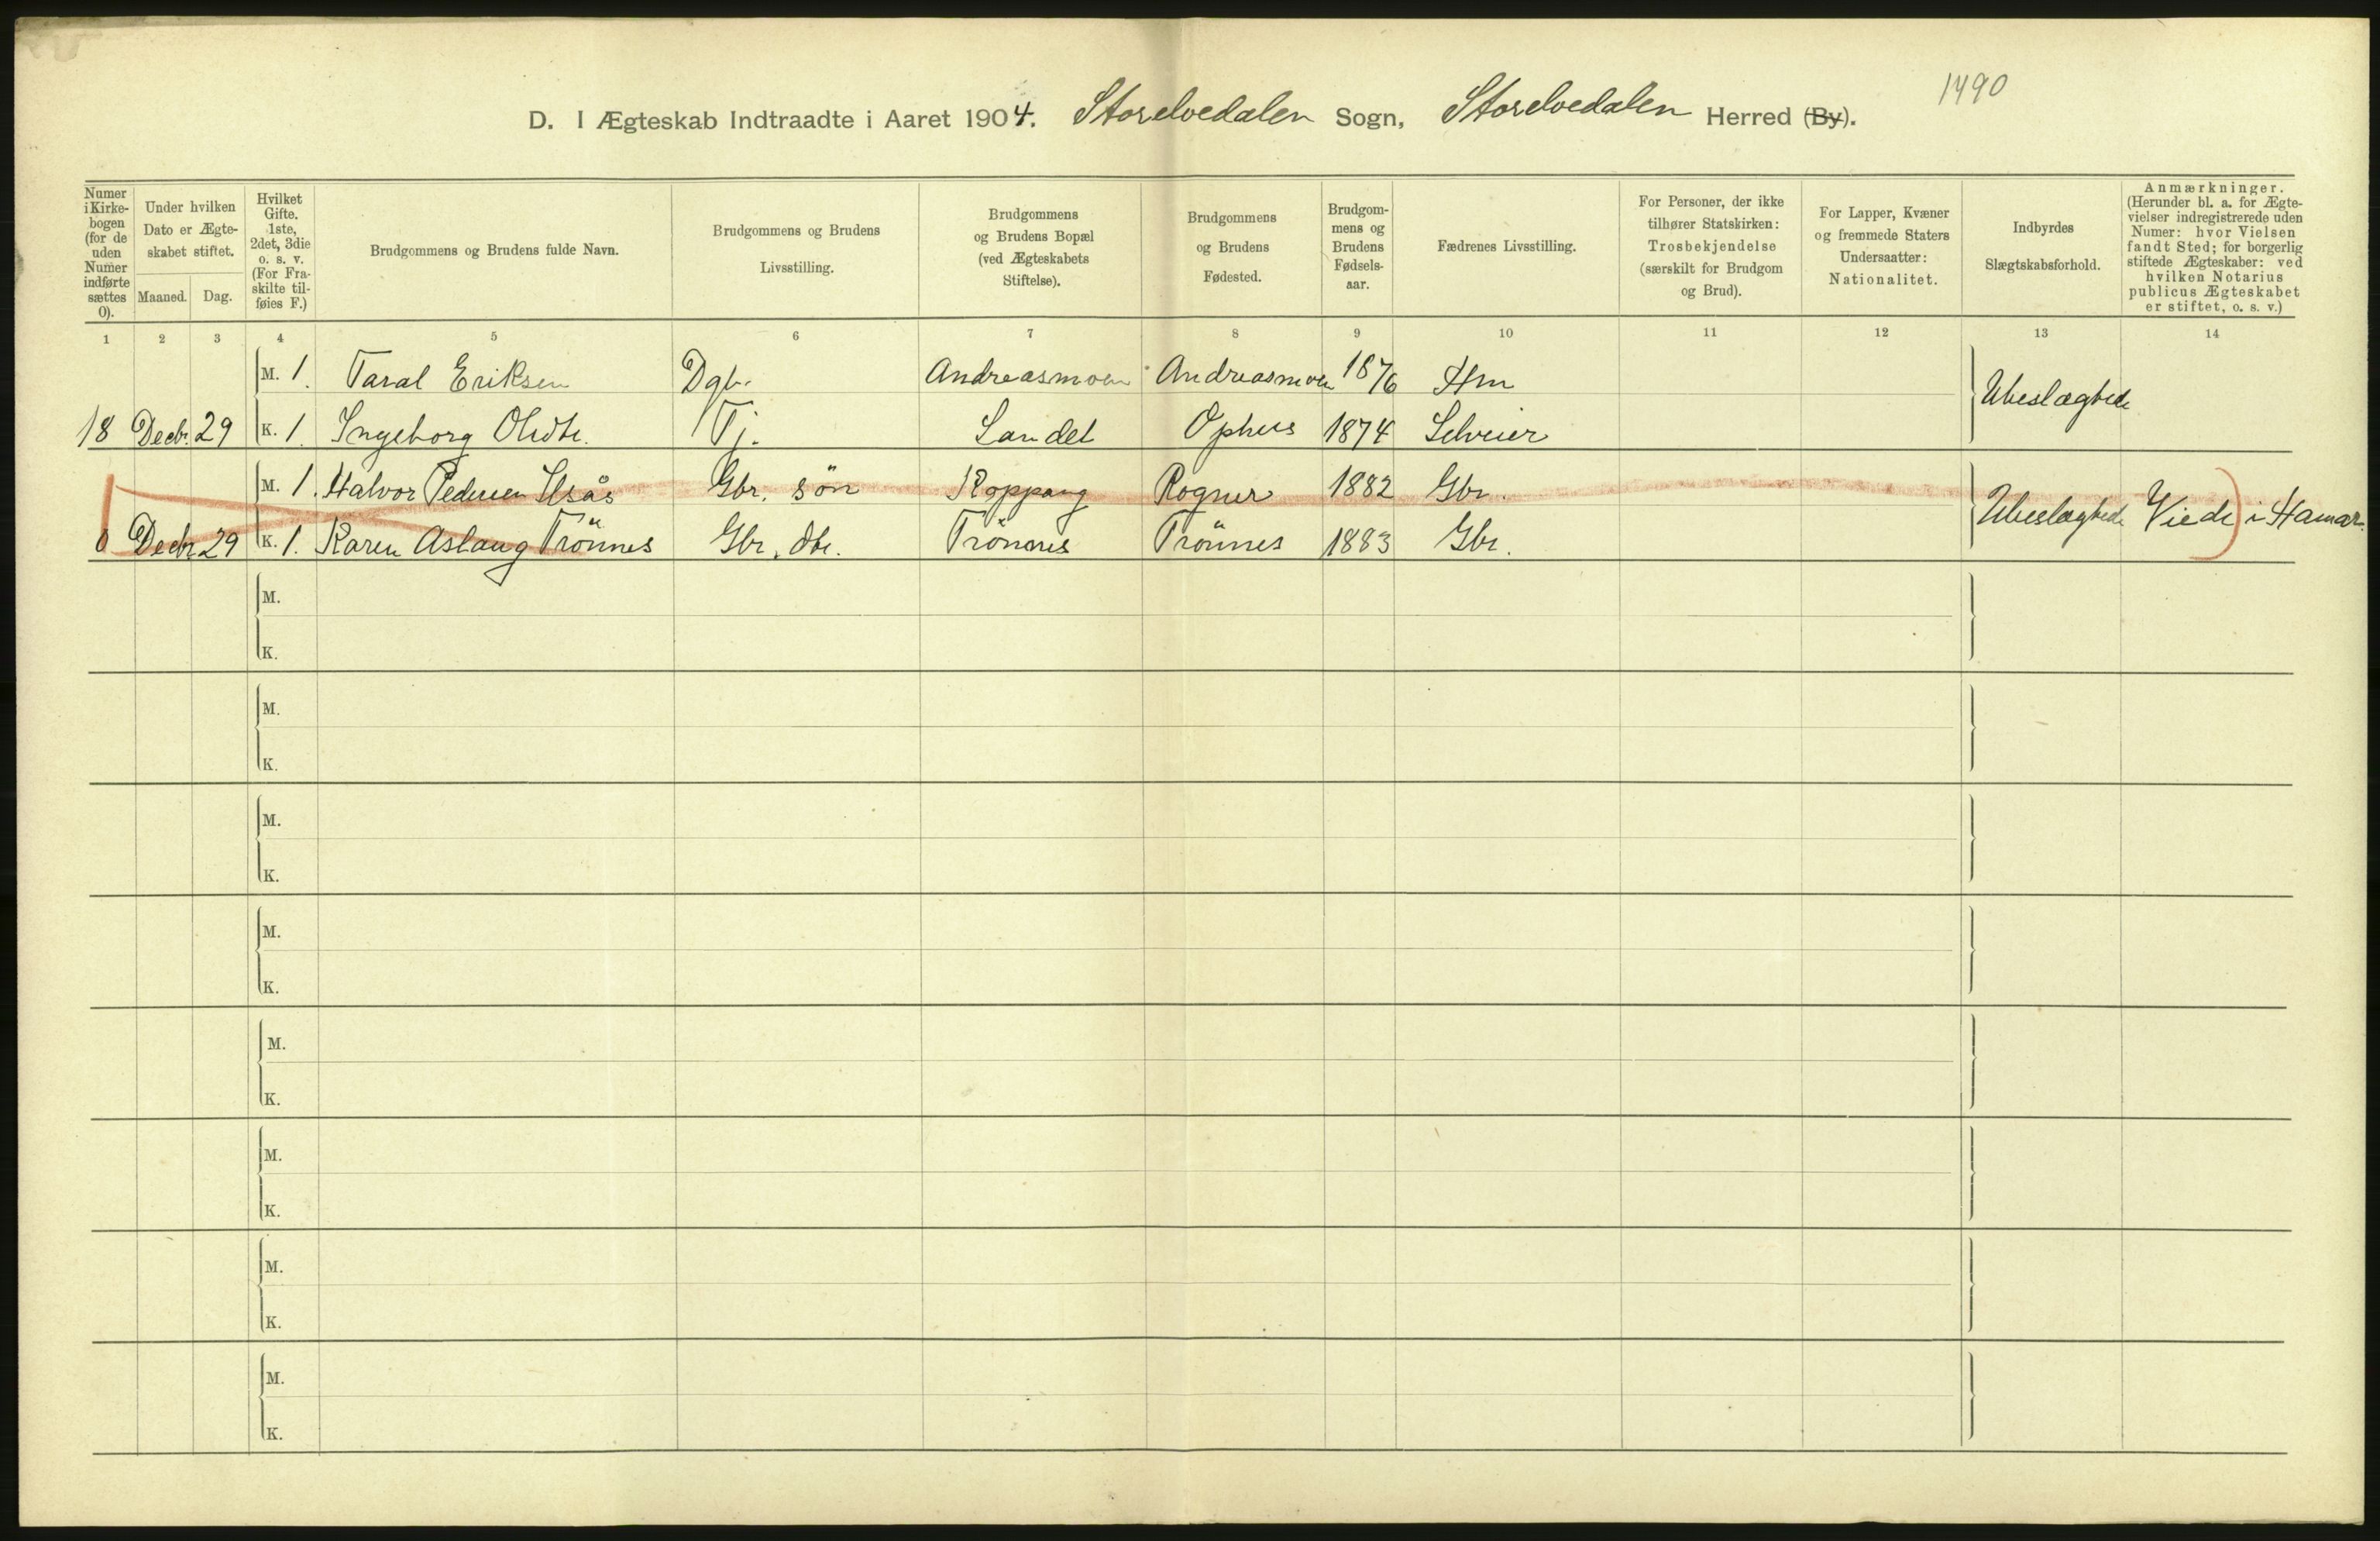 1490
D. I Ægteskab Indtraadte i Aaret 1904. Storelvedalen Sogn, Storelvedalen Herred (By).
Numer i Kirke-bogen (for de uden Numer indførte sættes 0).
Under hvilken Dato er Ægte-skabet stiftet.
Maaned. Dag.
Hvilket Gifte. 1ste, 2det, 3die o. s. v. (For Fra-skilte til-føies F.)
Brudgommens og Brudens fulde Navn.
Brudgommens og Brudens Livsstilling.
Brudgommens og Brudens Bopæl (ved Ægteskabets Stiftelse).
Brudgommens og Brudens Fødested.
Brudgom-mens og Brudens Fødsels-aar.
Fædrenes Livsstilling.
For Personer, der ikke tilhører Statskirken: Trosbekjendelse (særskilt for Brudgom og Brud).
For Lapper, Kvæner og fremmede Staters Undersaatter: Nationalitet.
Indbyrdes Slægtskabsforhold.
Anmærkninger. (Herunder bl. a. for Ægte-vielser indregistrerede uden Numer: hvor Vielsen fandt Sted; for borgerlig stiftede Ægteskaber: ved hvilken Notarius publicus Ægteskabet er stiftet, o. s. v.)
1 2 3 4 5 6 7 8 9 10 11 12 13 14
M. 1. Taral Eriksen Dgb. Andreasmoen Andreasmoen 1876 Hm Ubeslægtede
18 Decbr. 29 K. 1. Ingeborg Olsdtr. Tj. Landet Ophus 1874 Selveier
M. 1. Halvor Pedersen Ilsås Gbr. søn Koppang Rogner 1882 Gbr.
0 Decbr. 29 K. 1. Karen Aslaug Trönnes Gbr. dtr. Trönnes Trönnes 1883 Gbr. Ubeslægtede Viede i Hamar.
M.
K.
M.
K.
M.
K.
M.
K.
M.
K.
M.
K.
M.
K.
M.
K.